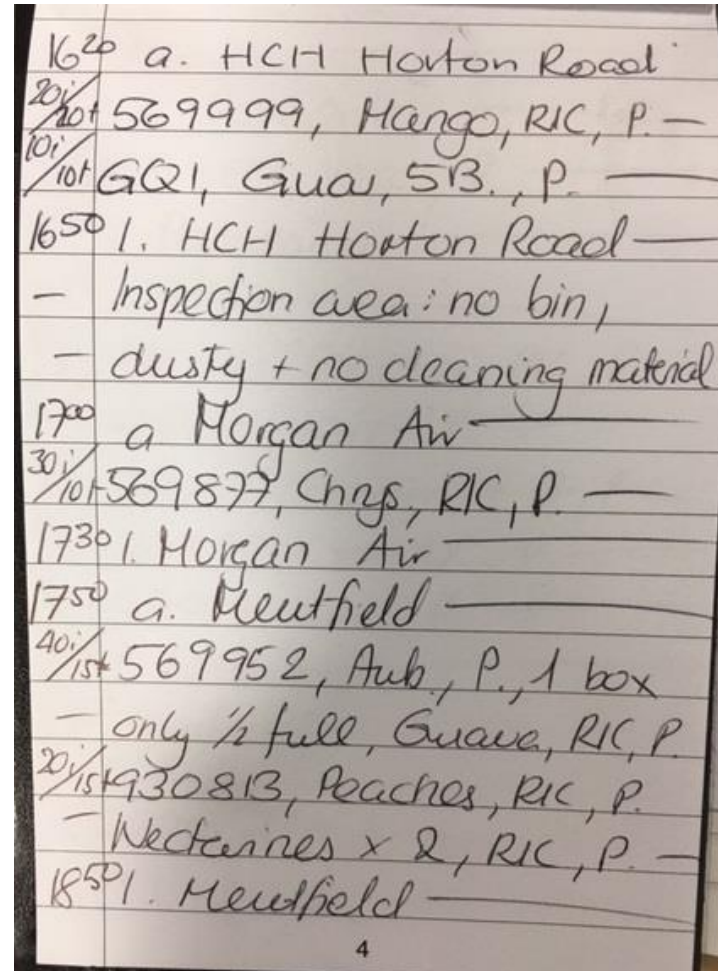 1620 a. HCH Horton Road
20i/20t 569999, Mango, RIC, P. —
10i/10t GQ1, Gua, 5B., P. —
1650 l. HCH Horton Road —
— Inspection area: no bin,
— dusty + no cleaning material
1700 a Morgan Air —
30i/10t 569877, Chrys, RIC, P. —
1730 l. Morgan Air —
1750 a. —
40i/15t 569952, Aub., P., 1 box
— only 1/2 full, Guava, RIC, P.
20i/15t 930813, Peaches, RIC, P.
— Nectarines x 2, RIC, P. —
1850 l. —
4